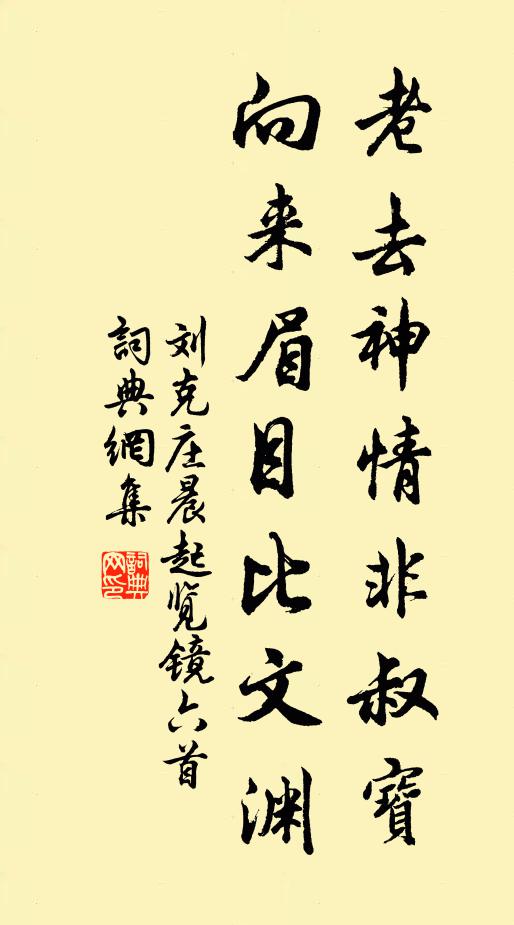 老去神情非叔寶
向来眉目比文渊
刘克庄晨起览镜六首
詞典網集
詞典網印